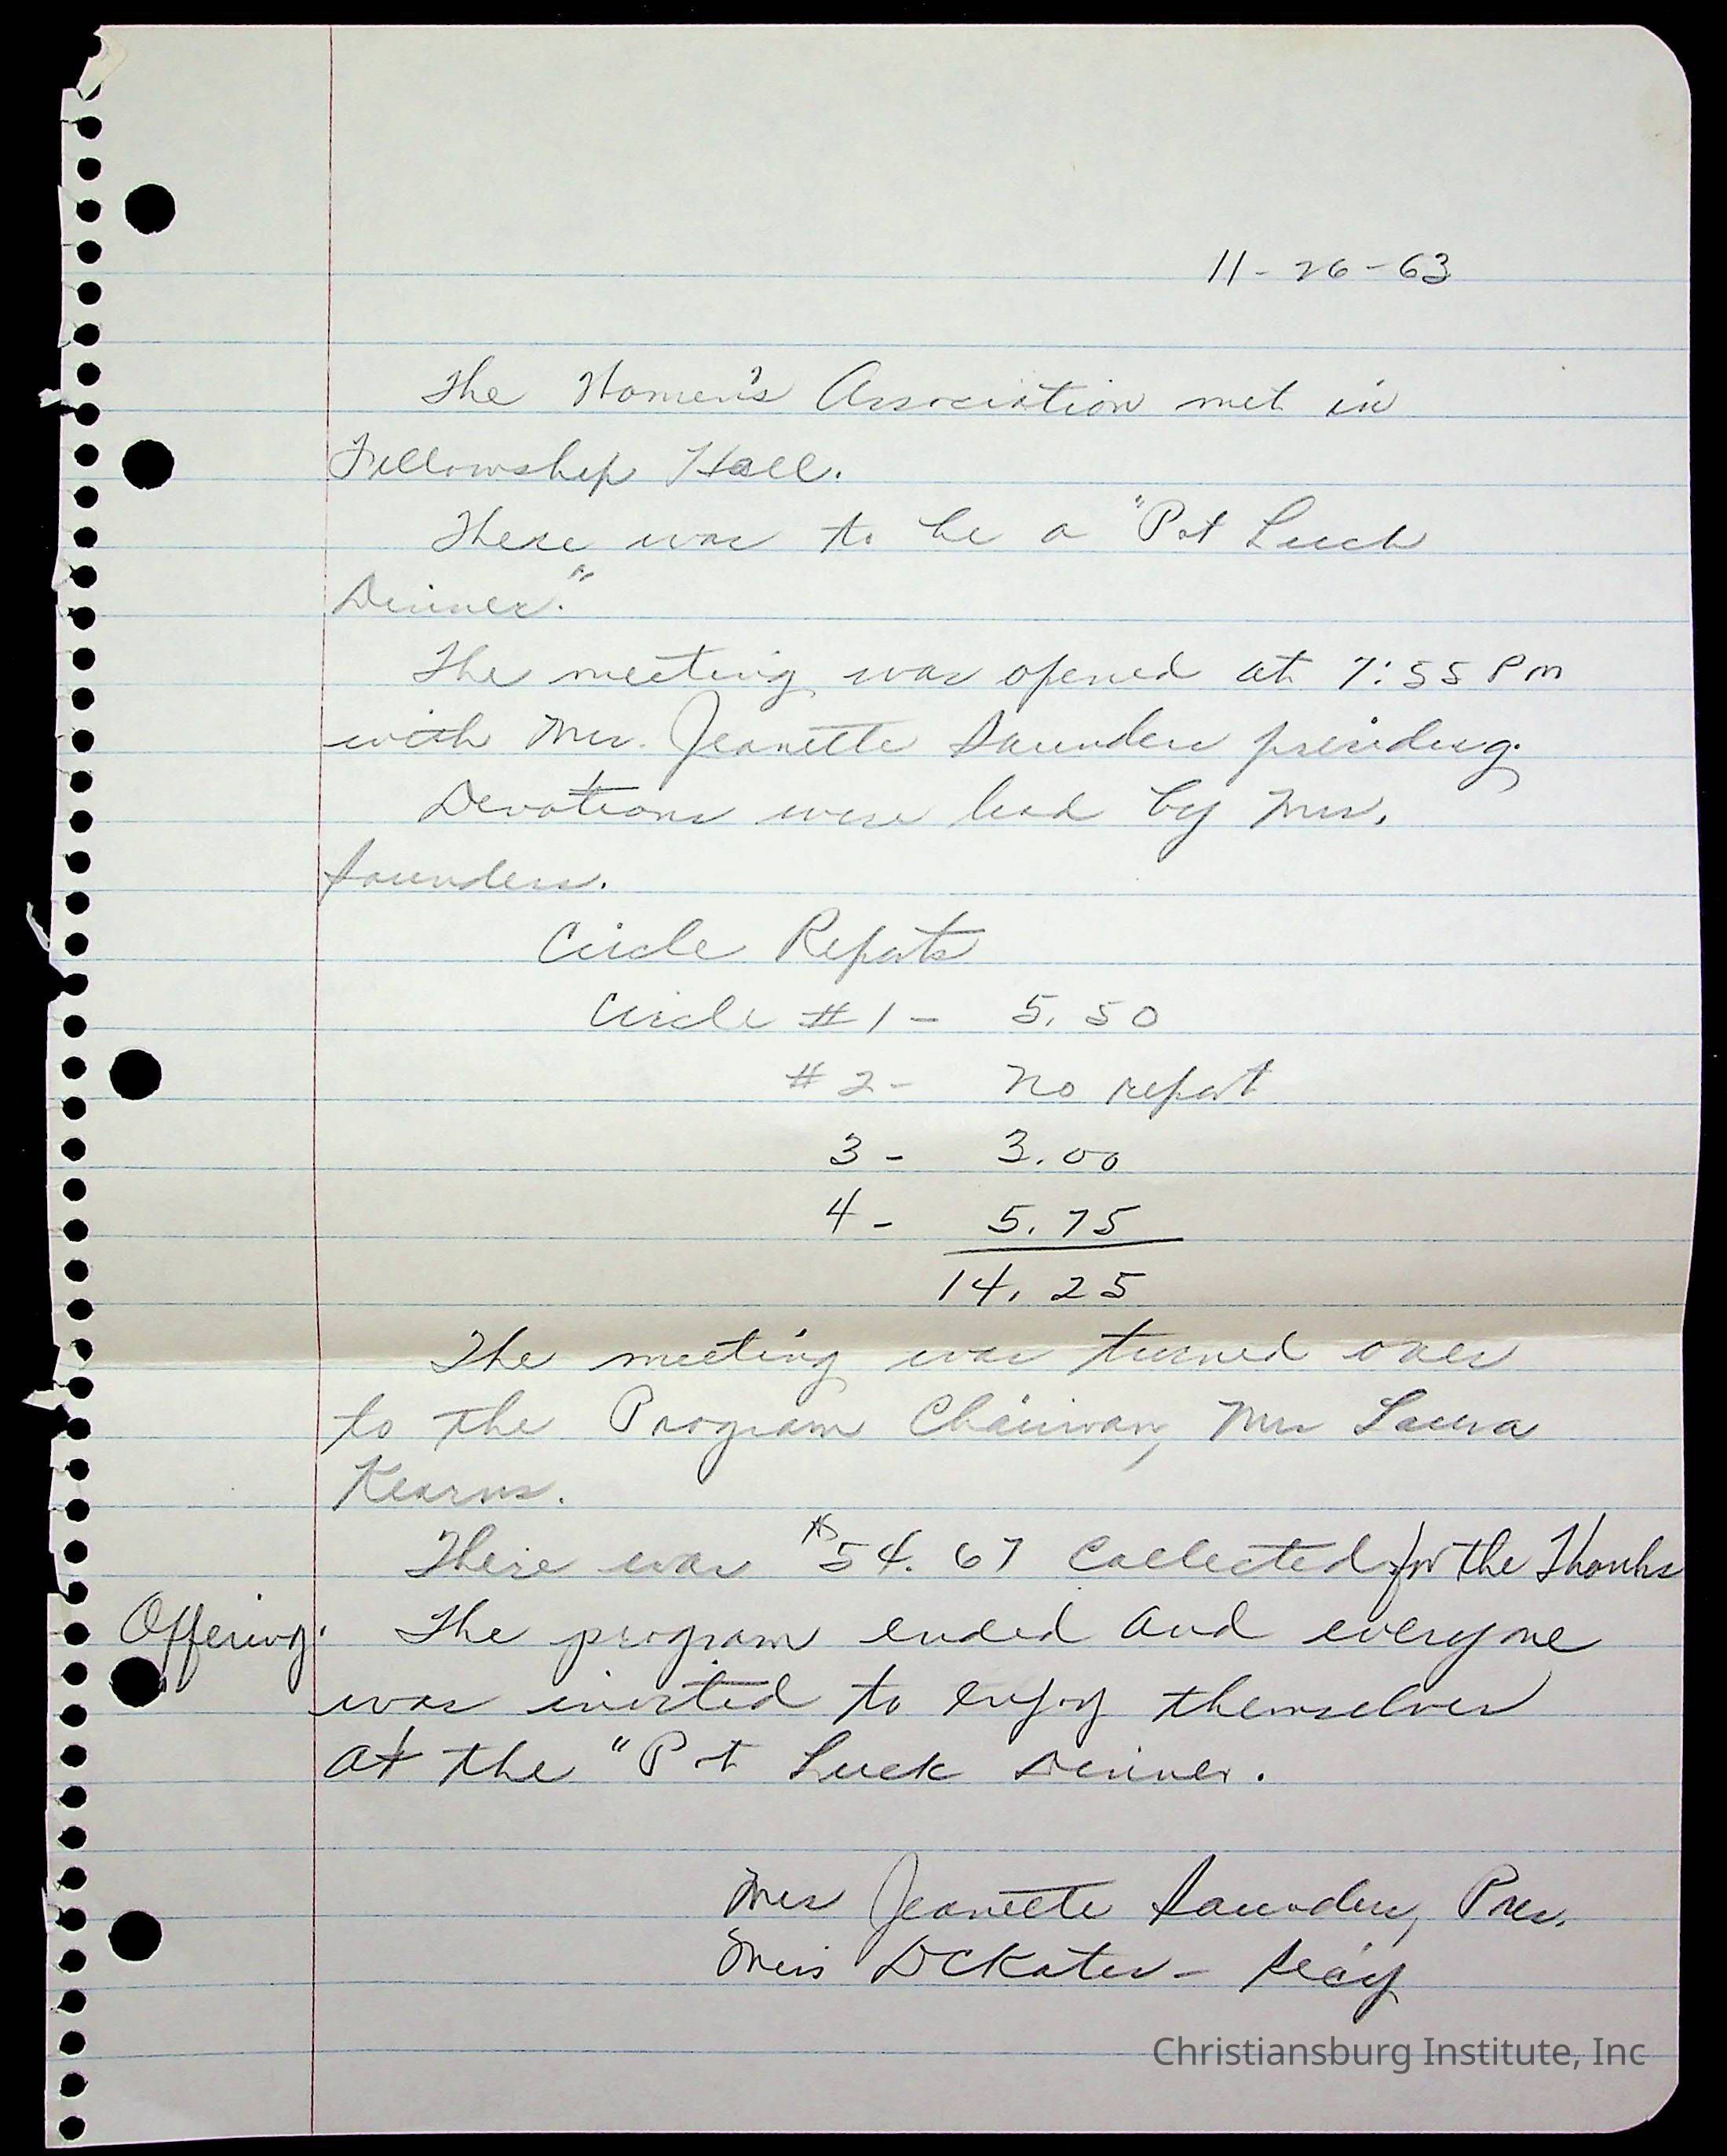 11-26-63
The Women's Association met in
Fellowship Hall.
There was to be a "Pot Luck
Dinner."
The meeting was opened at 7:55 Pm
with Mrs. Jeanette Saunders presiding.
Devotions were lead by Mrs.
Saunders.
Circle Reports
Circle #1- 5.50
#2- No report
3- 3.00
4- 5.75
14.25
The meeting was turned over
to the Program Chairman, Mrs Laura
Kearns.
There was $54.67 Collected for the Thanks
Offering. The program ended and everyone
was invited to enjoy themselves
at the "Pot Luck Dinner.
Mrs Jeanette Saunders, Pres.
Miss - Sec'y
Christiansburg Institute, Inc